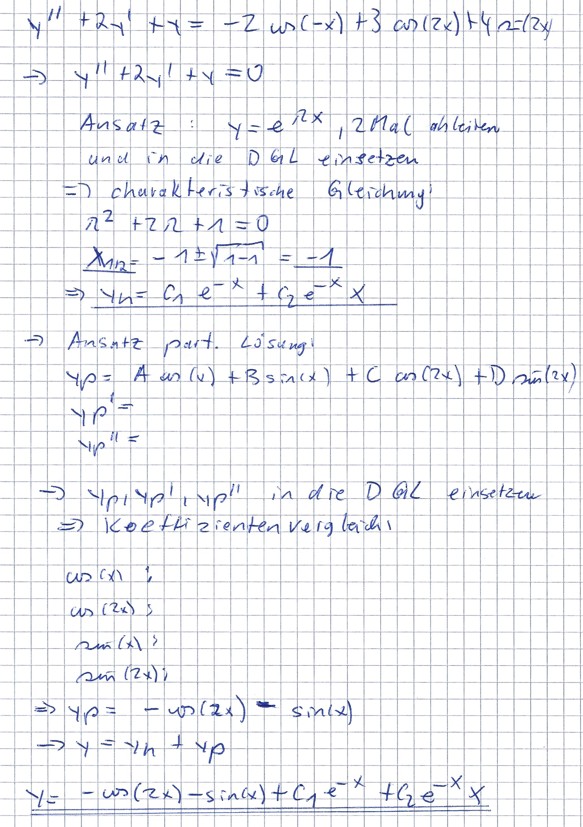 y'' + 2y' + y = -2 cos(-x) + 3 cos(2x) + 4 sin(2x)
→ y'' + 2y' + y = 0
Ansatz : y = e^λx , 2 Mal ableiten
und in die DGL einsetzen
⇒ charakteristische Gleichung:
λ² + 2λ + 1 = 0
λ1,2 = -1 ± √(1-1) = -1
⇒ yh = C1 e^-x + C2 e^-x x
→ Ansatz part. Lösung:
yp = A cos(x) + B sin(x) + C cos(2x) + D sin(2x)
yp' =
yp'' =
→ yp, yp', yp'' in die DGL einsetzen
⇒ Koeffizientenvergleich:
cos(x) :
cos(2x) :
sin(x) :
sin(2x) :
⇒ yp = - cos(2x) - sin(x)
→ y = yh + yp
y = - cos(2x) - sin(x) + C1 e^-x + C2 e^-x x